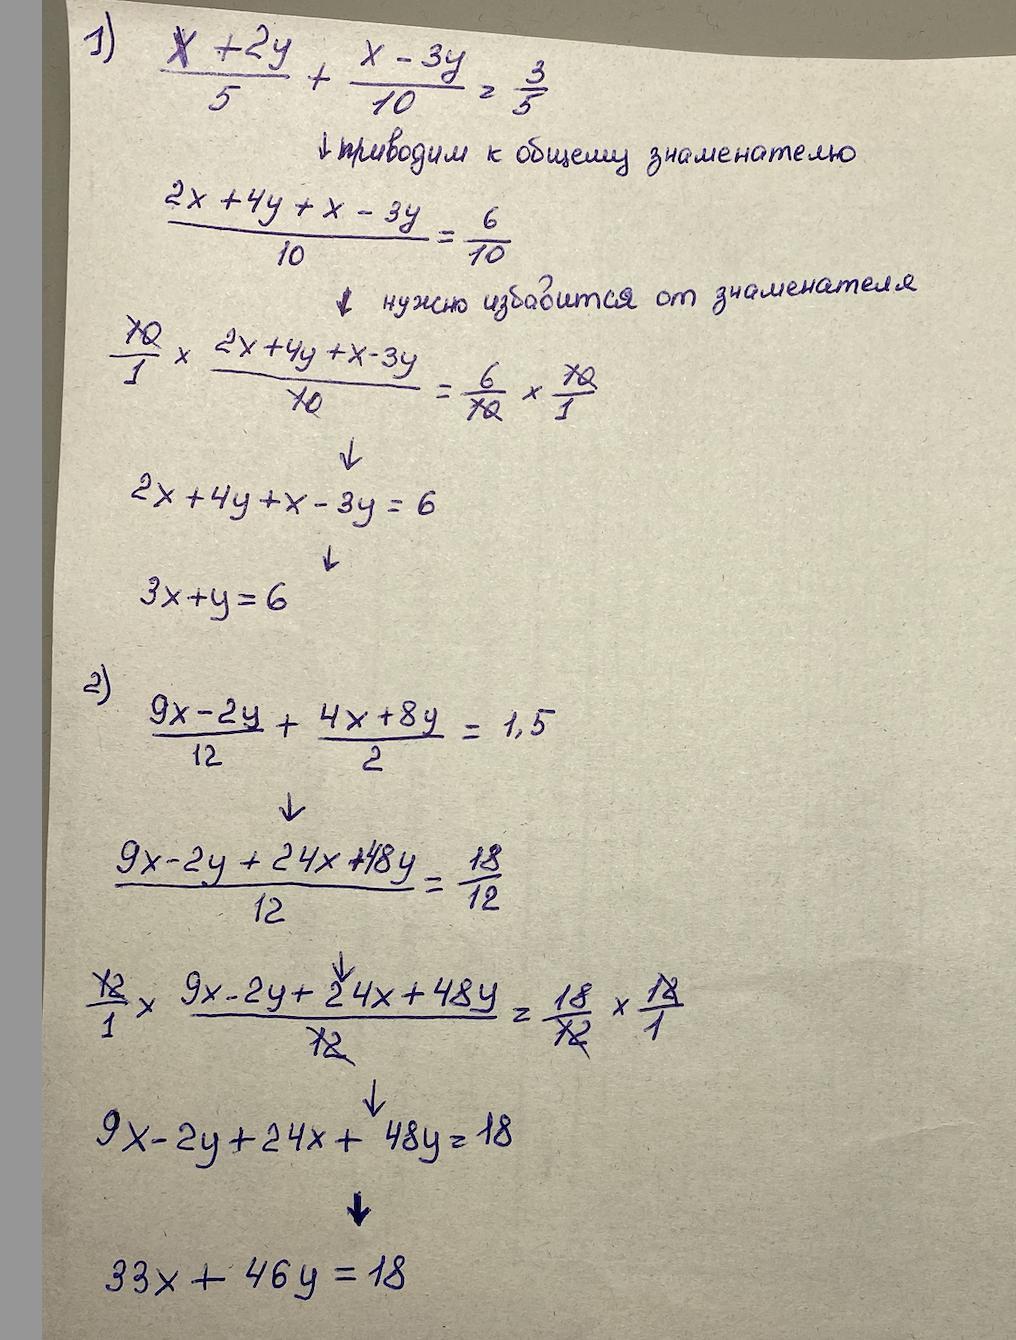 1) (x + 2y)/5 + (x - 3y)/10 = 3/5
↓ приводим к общему знаменателю
(2x + 4y + x - 3y)/10 = 6/10
↓ нужно избавится от знаменателя
10/1 × (2x + 4y + x - 3y)/10 = 6/10 × 10/1
↓
2x + 4y + x - 3y = 6
↓
3x + y = 6
2)
(9x - 2y)/12 + (4x + 8y)/2 = 1,5
↓
(9x - 2y + 24x + 48y)/12 = 18/12
↓
12/1 × (9x - 2y + 24x + 48y)/12 = 18/12 × 12/1
↓
9x - 2y + 24x + 48y = 18
↓
33x + 46y = 18